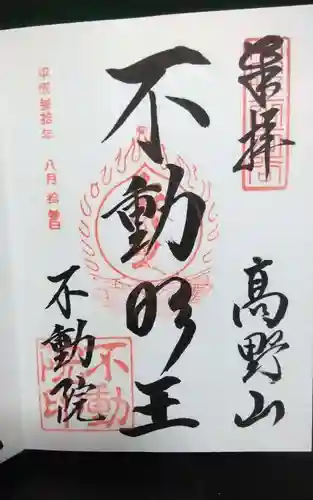 奉拝
高野山
不動明王
平成参拾年 八月 拾参日
不動院